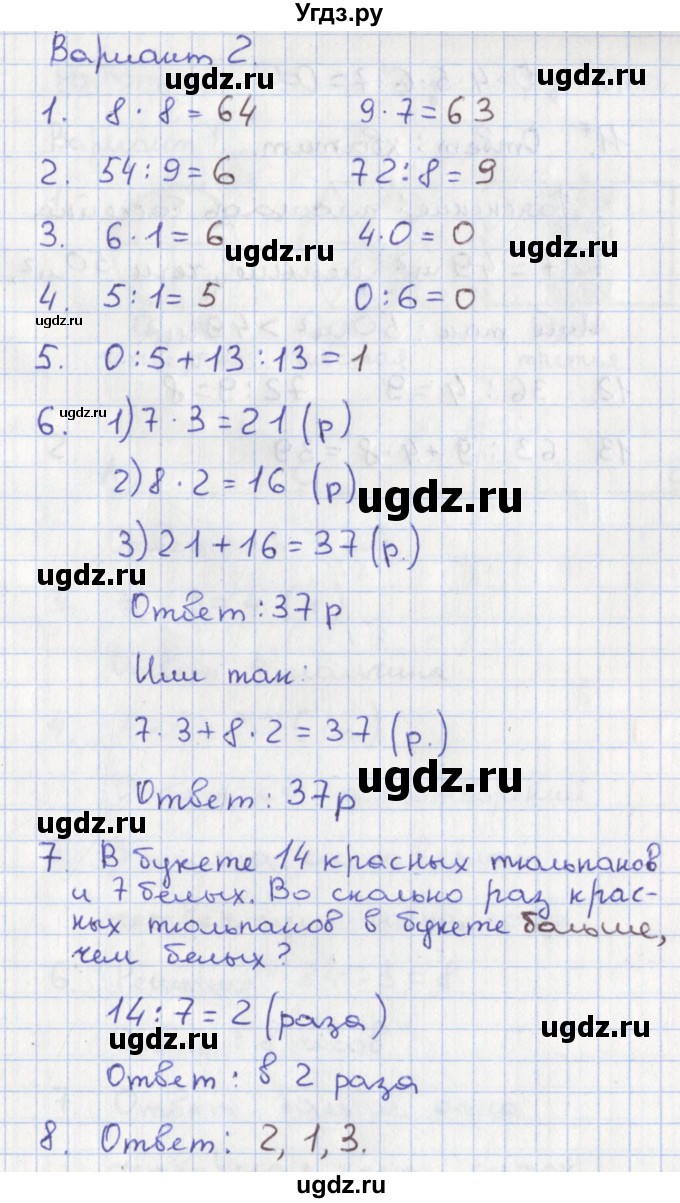 Угдз.ру
Вариант 2.
ugdz.ru
ugdz.ru
1. 8 · 8 = 64 9 · 7 = 63
2. 54 : 9 = 6 72 : 8 = 9
3. 6 · 1 = 6 4 · 0 = 0
ugdz.ru
ugdz.ru
4. 5 : 1 = 5 0 : 6 = 0
ugdz.ru
5. 0 : 5 + 13 : 13 = 1
ugdz.ru
6. 1) 7 · 3 = 21 (р)
2) 8 · 2 = 16 (р)
ugdz.ru
3) 21 + 16 = 37 (р.)
ugdz.ru
Ответ : 37 р
Или так:
7 · 3 + 8 · 2 = 37 (р.)
ugdz.ru
Ответ : 37р
7. В букете 14 красных тюльпанов
и 7 белых. Во сколько раз крас-
ных тюльпанов в букете больше,
чем белых?
14 : 7 = 2 (раза)
ugdz.ru
ugdz.ru
Ответ : в 2 раза
8. Ответ : 2, 1, 3.
ugdz.ru
ugdz.ru